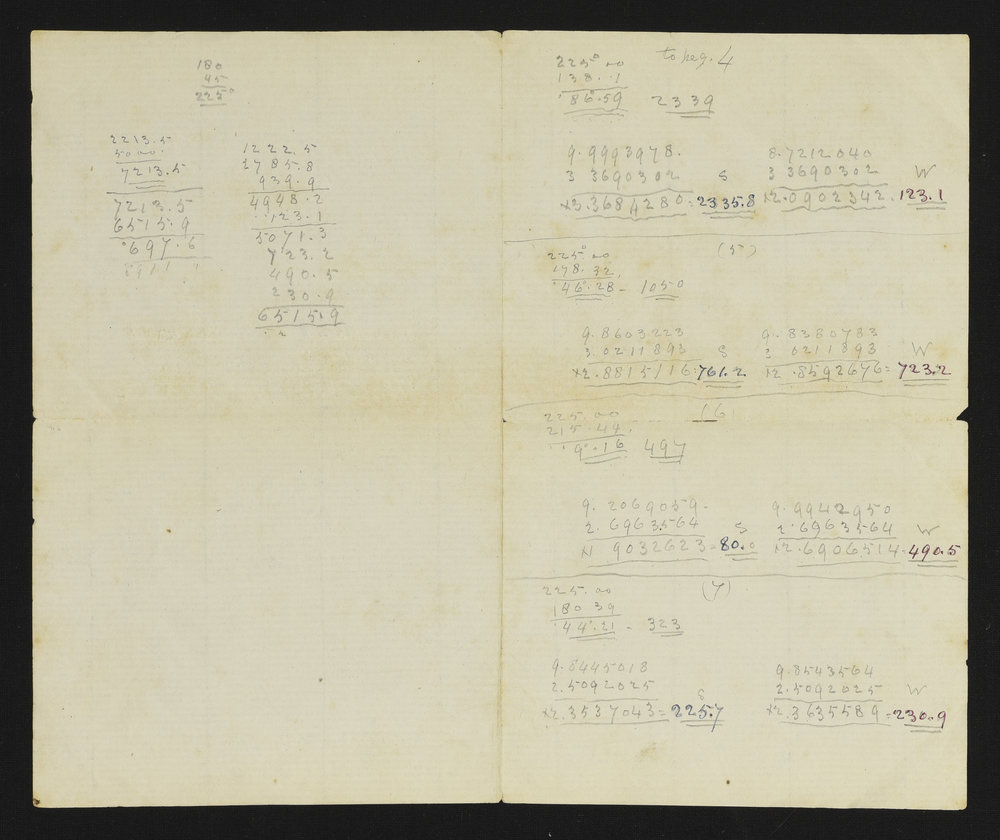 180
45
225°
2213.5
5000.
7213.5
7213.5
6515.9
697.6
1222.5
1785.8
939.9
4948.2
123.1
5071.3
723.2
490.5
230.9
6515.9
225°.00 to peg. 4
138..1
86°.59 2339
9.9993978. 8.7212040
3 3690302 S 3 3690302 W
3.3684280 = 2335.8 2.0902342. 123.1
225°.00 (5)
178.32.
46°.28 - 1050
9.8603223 9.8380783
3.0211893 S 3 0211893 W
2.8815116 = 761.2 2.8592676 = 723.2
225.00 (6
215.44.
9°.16 497
9.2069059. 9.9942950
2.6963564 S 2.6963564 W
1 9032623 = 80.0 2.6906514 = 490.5
225.00 (7)
180 39
44°.21 - 323
9.8445018 9.8543564
2.5092025 S 2.5092025 W
2.3537043 = 225.7 2.3635589 = 230.9